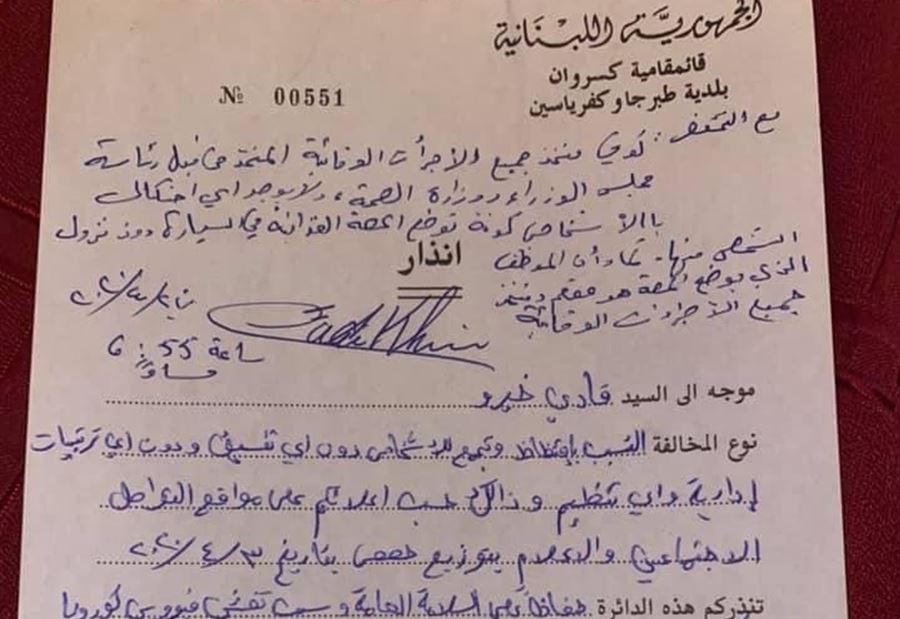 الجمهورية اللبنانية
قائمقامية كسروان
بلدية طبرجا وكفرياسين
№ 00551
مع التحفظ: كوني متخذ جميع الاجرأت الوقائية المتخذة من قبل رئاسة
مجلس الوزراء ووزارة الصحة، ولا يوجد اي احتكاك
بالأشخاص كونه توضع الحصة الغذائية في السيارة دون نزول
الشخص منها. كما وأن الموظف
الذي يوضع الحصة هو معقم ويتخذ
جميع الأجراءات الوقائية
انذار
ساعة 6:55
مساءً
موجه الى السيد فادي خيرو
نوع المخالفة التسبب بإكتظاظ وتجمع للاشخاص دون اي تنسيق ودون اي ترتيبات
إدارية واي تنظيم وذالك حسب اعلانكم على مواقع التواصل
الاجتماعي والاعلام بتوزيع حصص بتاريخ ٣/٤/٢٠٢٠
تنذركم هذه الدائرة حفاظاً على السلامة العامة وسبب تفشي فيروس كورونا